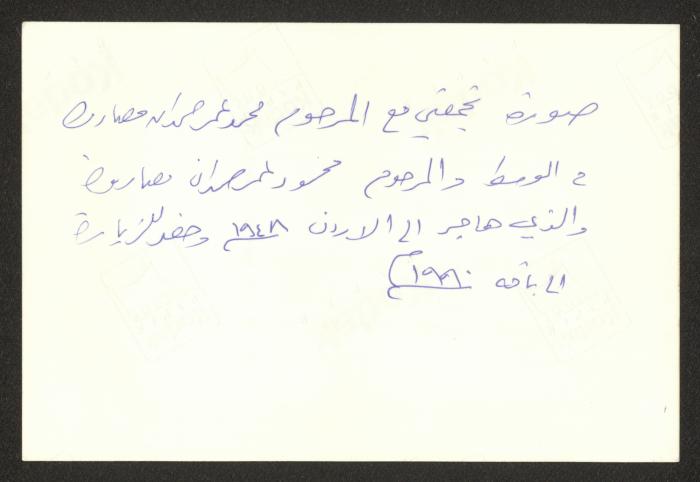 صورة تجمعني مع المرحوم محمد عمر حمدان مصاروة
في الوسط والمرحوم محمود عمر حمدان مصاروة
والذي هاجر الى الاردن ١٩٤٨ وحضر للزيارة
الى باقه